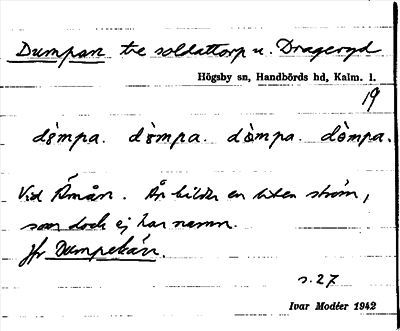 Dumpan tre soldattorp u. Drageryd
Högsby sn, Handbörds hd, Kalm. l.
19
dòmpa. dòmpa. dòmpa. dòmpa.
Vid Åmån. Ån bildar en liten ström,
som dock ej har namn.
Jfr Dumpekärr.
s. 27
Ivar Modéer 1942